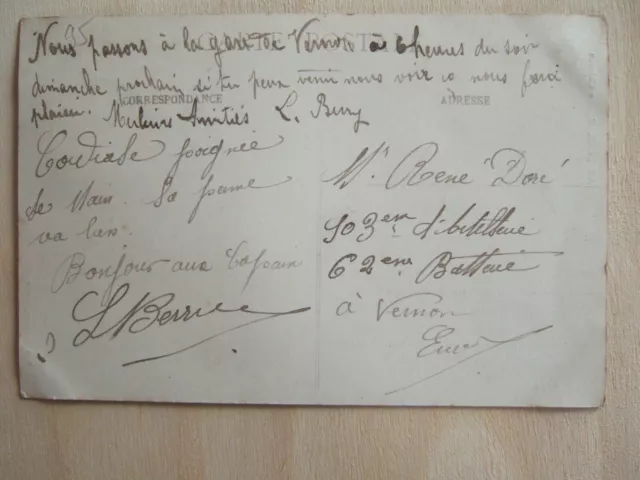 95
CARTE POSTALE
Nous passons à la gare de Vernon à 6 heures du soir
dimanche prochain si tu peux venir nous voir ca nous fera
plaisir. Meilleures Amitiés L. Bury
CORRESPONDANCE
ADRESSE
Cordiale poignée
de Main. La
va bien.
Bonjour aux Copain
L Berrie
Mr Rene Doré
103em d'Artillerie
62em Batterie
à Vernon
Eure